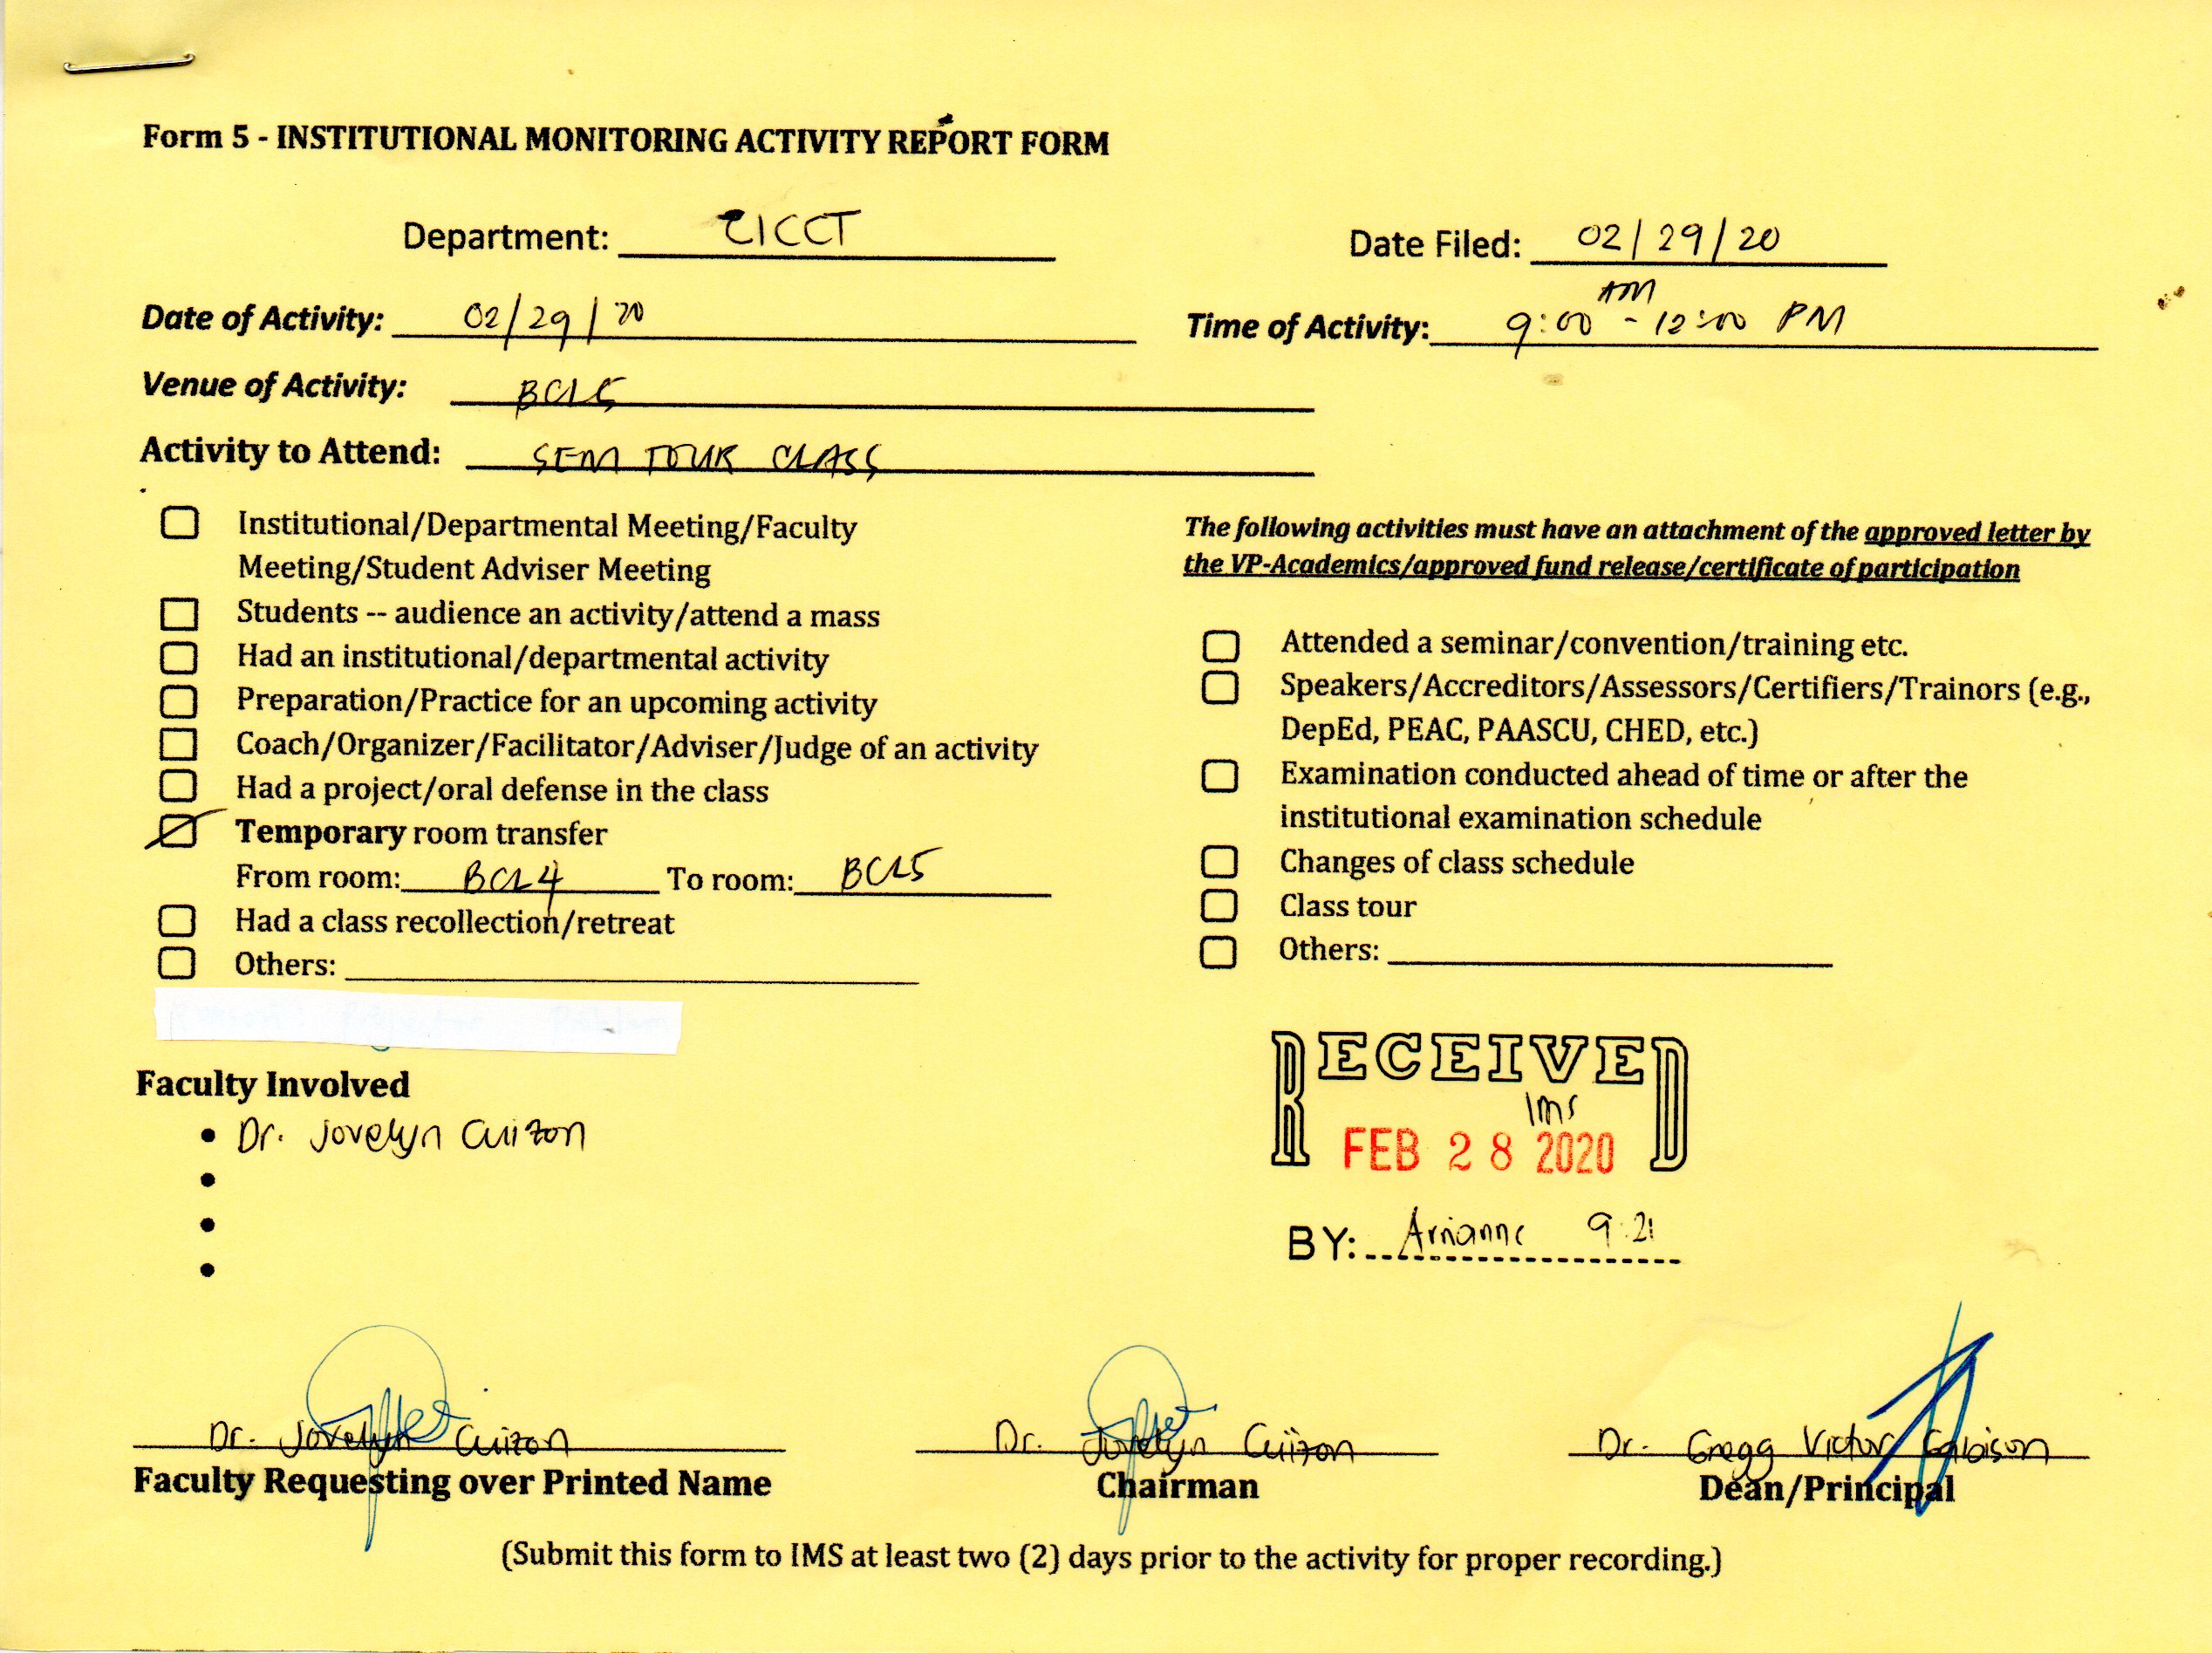 Form 5 - INSTITUTIONAL MONITORING ACTIVITY REPORT FORM
Department: CICCT
Date Filed: 02/29/20
Date of Activity: 02/29/20
Time of Activity: 9:00 AM - 12:00 PM
Venue of Activity: BCL5
Activity to Attend: SEM TOUR CLASS
Institutional/Departmental Meeting/Faculty
Meeting/Student Adviser Meeting
Students -- audience an activity/attend a mass
Had an institutional/departmental activity
Preparation/Practice for an upcoming activity
Coach/Organizer/Facilitator/Adviser/Judge of an activity
Had a project/oral defense in the class
Temporary room transfer
From room: BCL4 To room: BCL5
Had a class recollection/retreat
Others:
The following activities must have an attachment of the approved letter by
the VP-Academics/approved fund release/certificate of participation
Attended a seminar/convention/training etc.
Speakers/Accreditors/Assessors/Certifiers/Trainors (e.g.,
DepEd, PEAC, PAASCU, CHED, etc.)
Examination conducted ahead of time or after the
institutional examination schedule
Changes of class schedule
Class tour
Others:
Faculty Involved
Dr. Jovelyn Cuizon
RECEIVED
IMS
FEB 28 2020
BY: Arianne 9:21
Dr. Jovelyn Cuizon
Faculty Requesting over Printed Name
Dr. Jovelyn Cuizon
Chairman
Dr. Gregg Victor Gabison
Dean/Principal
(Submit this form to IMS at least two (2) days prior to the activity for proper recording.)